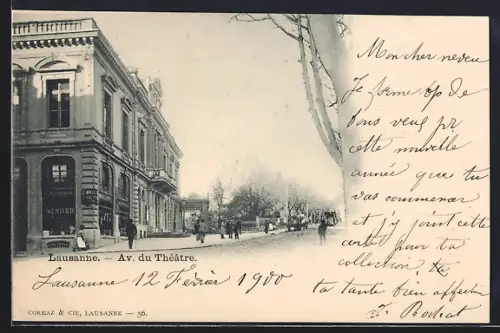 SINGER
Mon cher neveu
Je forme
bons veux pr
cette nouvelle
année que tu
vas commencer
et j'y joint cette
carte pour ta
collection, ta
ta tante bien affection
Rochat
Lausanne. — Av. du Théâtre.
Lausanne 12 Février 1900
CORBAZ & CIE, LAUSANNE — 56.